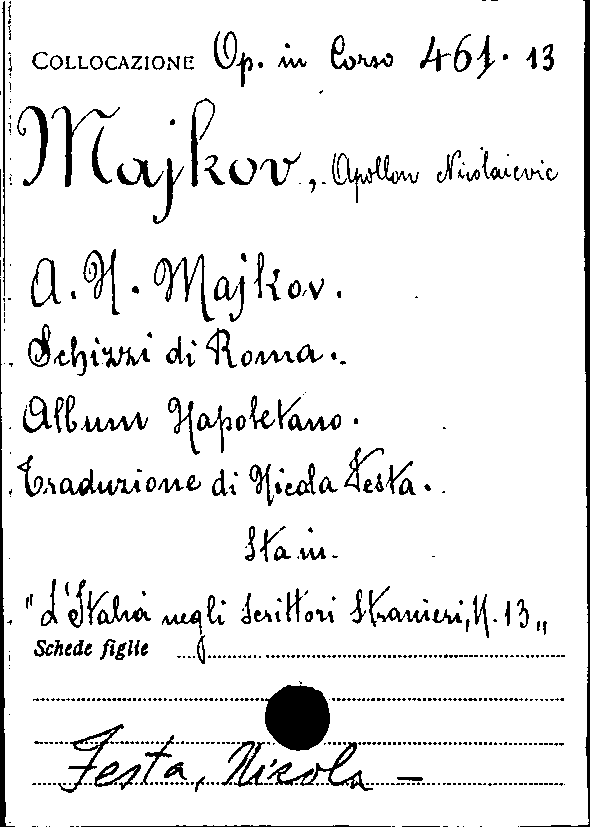 COLLOCAZIONE Op. in Corso 461. 13
Majkov, Apollon Nicolaievic
A. N. Majkov.
Schizzi di Roma.
Album Napoletano.
Traduzione di Nicola Festa.
Sta in.
"L'Italia negli Scrittori Stranieri, N. 13„
Schede figlie
Festa, Nicola —